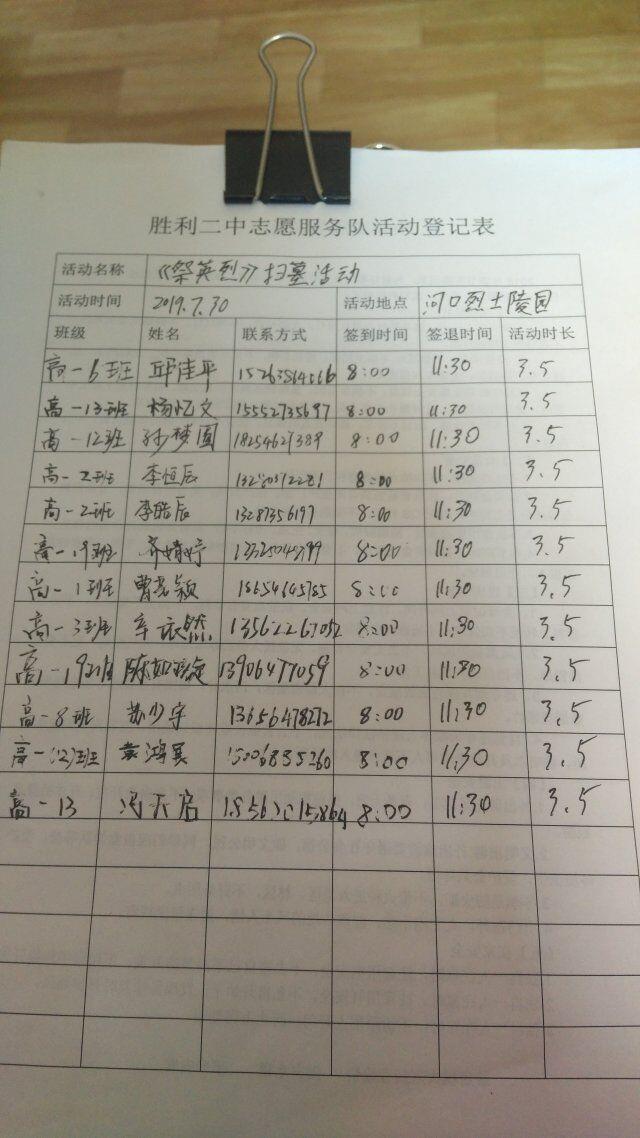 胜利二中志愿服务队活动登记表
活动名称 《祭英烈》扫墓活动
活动时间 2019.7.30 活动地点 河口烈士陵园
班级 姓名 联系方式 签到时间 签退时间 活动时长
高一6班 邱佳平 8:00 11:30 3.5
高一13班 杨忆文 15552735697 8:00 11:30 3.5
高一12班 孙梦圆 18254627389 8:00 11:30 3.5
高一2班 李恒辰 8:00 11:30 3.5
高一2班 李皓辰 13287356197 8:00 11:30 3.5
高一19班 齐婧婷 8:00 11:30 3.5
高一1班 18654645785 8:00 11:30 3.5
高一3班 13562267052 8:00 11:30 3.5
高一19班 13906477059 8:00 11:30 3.5
高一8班 苏少宇 13656478272 8:00 11:30 3.5
高一(12)班 袁鸿昊 15006835260 8:00 11:30 3.5
高一13 冯天启 8:00 11:30 3.5